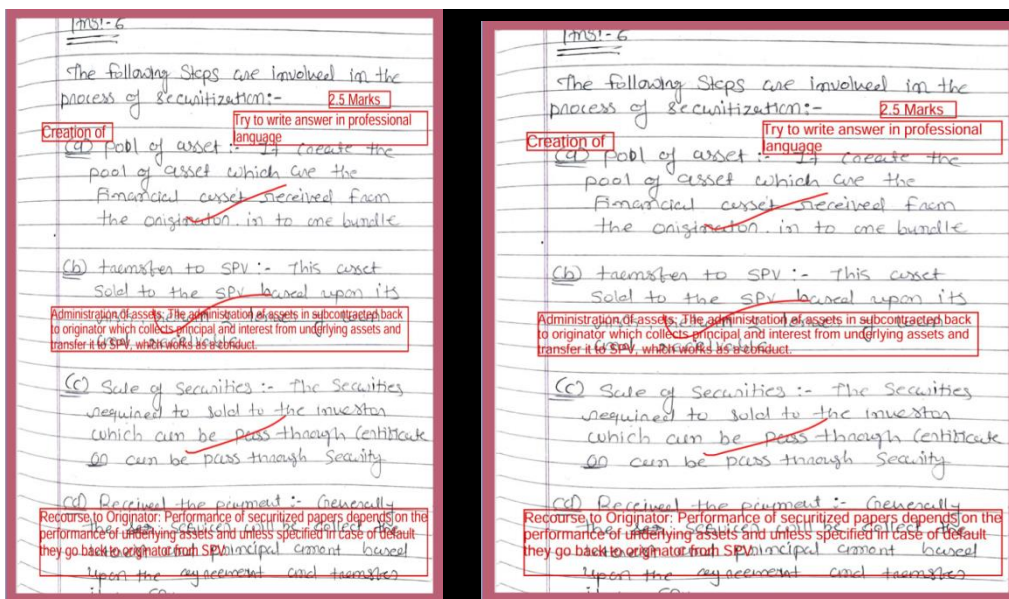 Ans:-6
The following Steps are involved in the
process of securitization:-
2.5 Marks
Try to write answer in professional
language
Creation of
(a) Pool of asset :- It create the
pool of asset which are the
Financial asset received from
the originator. in to one bundle
(b) transfer to SPV :- This asset
Sold to the SPV based upon its
Administration of assets: The administration of assets in subcontracted back
to originator which collects principal and interest from underlying assets and
transfer it to SPV, which works as a conduct.
(c) Sale of Securities :- The Securities
required to sold to the investor
which can be pass-through Certificate
or can be pass through Security
(d) Received the payment :- Generally
Recourse to Originator: Performance of securitized papers depends on the
performance of underlying assets and unless specified in case of default
they go back to originator from SPV.
the servicer will be collect the
principal amont based
upon the agreement and transfer
Ans:-6
The following Steps are involved in the
process of securitization:-
2.5 Marks
Try to write answer in professional
language
Creation of
(a) Pool of asset :- It create the
pool of asset which are the
Financial asset received from
the originator. in to one bundle
(b) transfer to SPV :- This asset
Sold to the SPV based upon its
Administration of assets: The administration of assets in subcontracted back
to originator which collects principal and interest from underlying assets and
transfer it to SPV, which works as a conduct.
(c) Sale of Securities :- The Securities
required to sold to the investor
which can be pass-through Certificate
or can be pass through Security
(d) Received the payment :- Generally
Recourse to Originator: Performance of securitized papers depends on the
performance of underlying assets and unless specified in case of default
they go back to originator from SPV.
the servicer will be collect the
principal amont based
upon the agreement and transfer